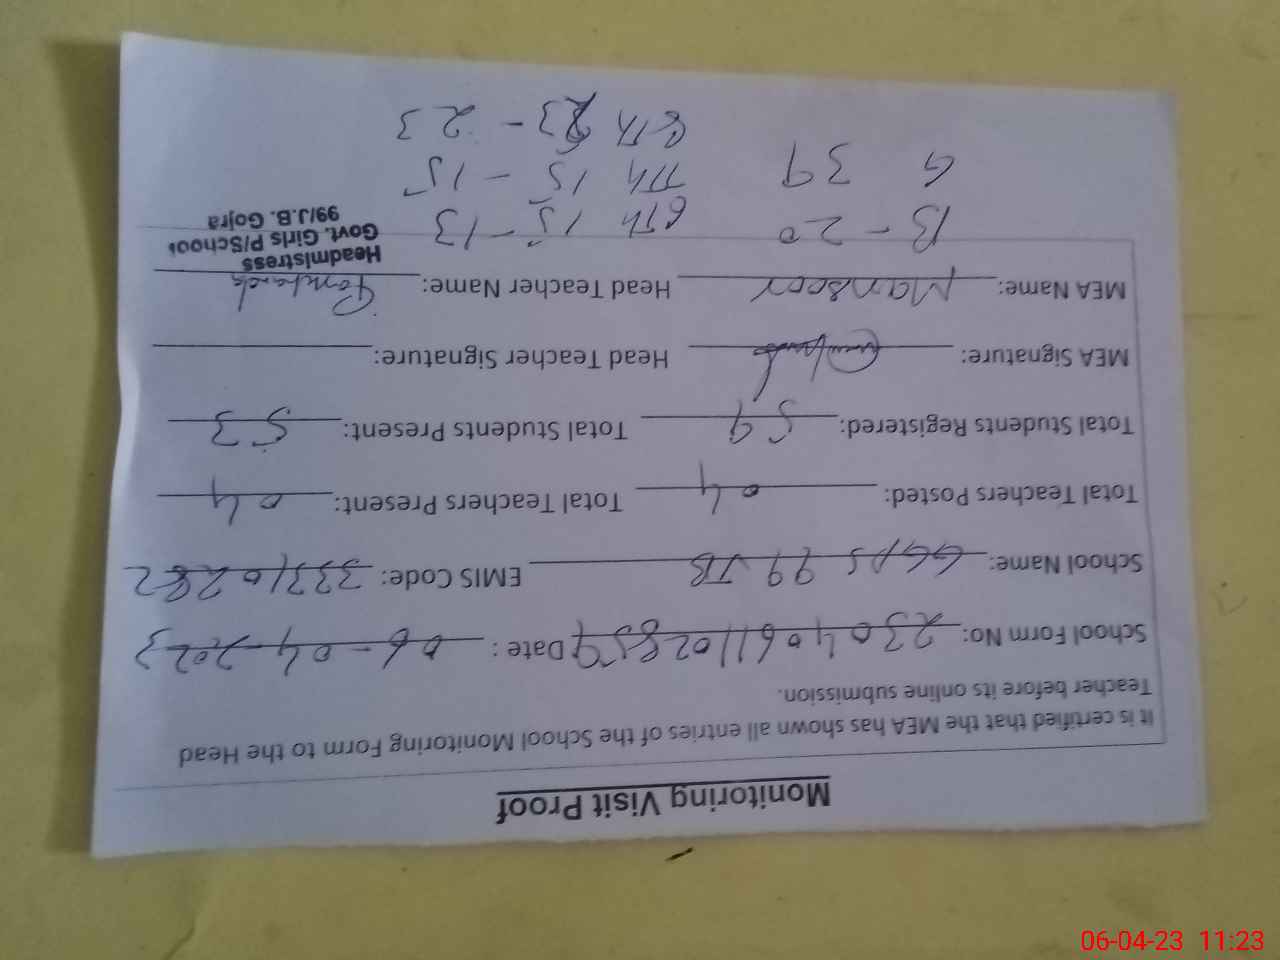 Monitoring Visit Proof
It is certified that the MEA has shown all entries of the School Monitoring Form to the Head
Teacher before its online submission.
School Form No: 2304061102859 Date : 06-04-2023
School Name: GGPS 99 JB EMIS Code: 33310282
Total Teachers Posted: 04 Total Teachers Present: 04
Total Students Registered: 59 Total Students Present: 53
MEA Signature: Head Teacher Signature:
MEA Name: Mansoor Head Teacher Name:
Headmistress
Govt. Girls P/School
99/J.B. Gojra
B - 20 6th 15 - 13
G 39 7th 15 - 15
8th 23 - 23
06-04-23 11:23